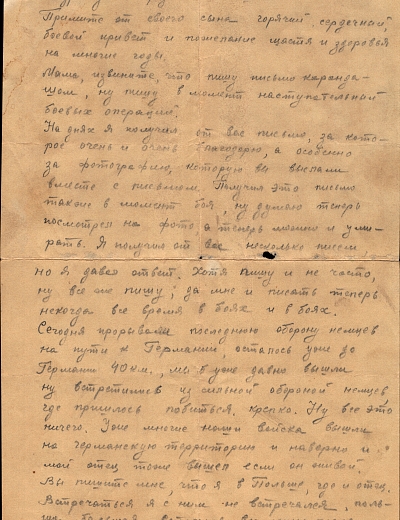 Примите от своего сына горячий, сердечный,
боевой привет и пожелание щастя и здоровья
на многие годы.
Мама, извините, что пишу письмо каранда-
шом, ну пишу в момент наступательной
боевых операций.
На днях я получил от вас письмо, за кото-
рое очень и очень благодарю, а особенно
за фотографию, которую вы выслали
вместе с письмом. Получил это письмо
также в момент боя, ну думаю теперь
посмотрел на фото, а теперь можно и уми-
рать. Я получил от вас несколько писем
но я давал ответ. Хотя пишу и не часто,
ну все же пишу; да мне и писать теперь
некогда все время в боях и в боях.
Сегодня прорывали последнюю оборону немцев
на пути к Германии, осталось уже до
Германи 40 км., мы б уже давно вышли
ну встретились из сильной обороной немцев,
где пришлось побиться, крепко. Ну все это
ничего. Уже многие наши войска вышли
на германскую территории и наверно и
мой отец тоже вышел если он живой.
Вы пишите мне, что я в Польше, где и отец.
Встречаться я с ним не встречался, поль-